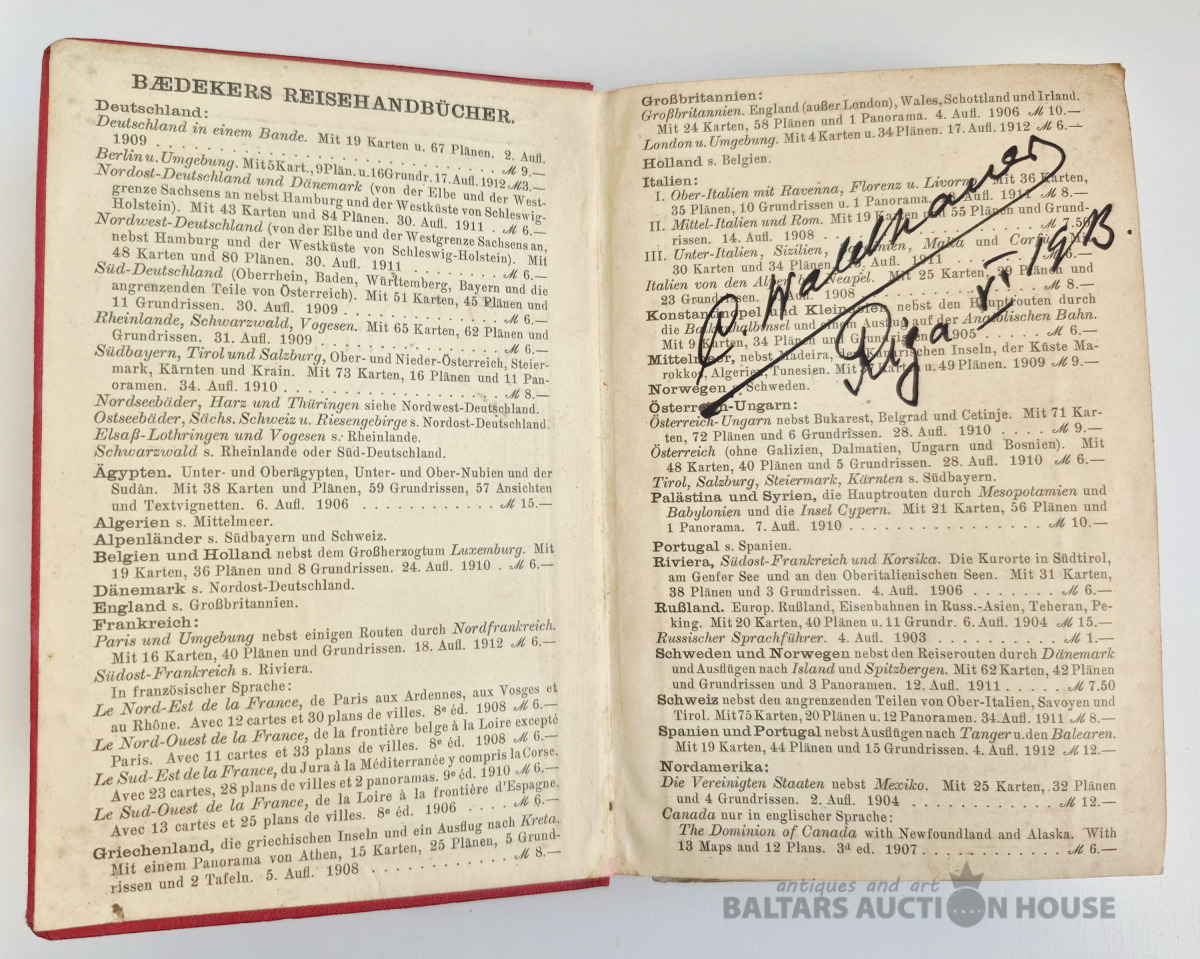 BÆDEKERS REISEHANDBÜCHER.
Deutschland:
Deutschland in einem Bande. Mit 19 Karten u. 67 Plänen. 2. Aufl.
1909 . . . . . . . . . . . . . . . . . . . . . . . . . ℳ 9.—
Berlin u. Umgebung. Mit 5 Kart., 9 Plän. u. 16 Grundr. 17. Aufl. 1912 ℳ 3.—
Nordost-Deutschland und Dänemark (von der Elbe und der West-
grenze Sachsens an nebst Hamburg und der Westküste von Schleswig-
Holstein). Mit 43 Karten und 84 Plänen. 30. Aufl. 1911 . ℳ 6.—
Nordwest-Deutschland (von der Elbe und der Westgrenze Sachsens an,
nebst Hamburg und der Westküste von Schleswig-Holstein). Mit
48 Karten und 80 Plänen. 30. Aufl. 1911 . . . . . . . . ℳ 6.—
Süd-Deutschland (Oberrhein, Baden, Württemberg, Bayern und die
angrenzenden Teile von Österreich). Mit 51 Karten, 45 Plänen und
11 Grundrissen. 30. Aufl. 1909 . . . . . . . . . . . . ℳ 6.—
Rheinlande, Schwarzwald, Vogesen. Mit 65 Karten, 62 Plänen und
Grundrissen. 31. Aufl. 1909 . . . . . . . . . . . . . . ℳ 6.—
Südbayern, Tirol und Salzburg, Ober- und Nieder-Österreich, Steier-
mark, Kärnten und Krain. Mit 73 Karten, 16 Plänen und 11 Pan-
oramen. 34. Aufl. 1910 . . . . . . . . . . . . . . . . ℳ 8.—
Nordseebäder, Harz und Thüringen siehe Nordwest-Deutschland.
Ostseebäder, Sächs. Schweiz u. Riesengebirge s. Nordost-Deutschland.
Elsaß-Lothringen und Vogesen s. Rheinlande.
Schwarzwald s. Rheinlande oder Süd-Deutschland.
Ägypten. Unter- und Oberägypten, Unter- und Ober-Nubien und der
Sudân. Mit 38 Karten und Plänen, 59 Grundrissen, 57 Ansichten
und Textvignetten. 6. Aufl. 1906 . . . . . . . . . . . ℳ 15.—
Algerien s. Mittelmeer.
Alpenländer s. Südbayern und Schweiz.
Belgien und Holland nebst dem Großherzogtum Luxemburg. Mit
19 Karten, 36 Plänen und 8 Grundrissen. 24. Aufl. 1910 . ℳ 6.—
Dänemark s. Nordost-Deutschland.
England s. Großbritannien.
Frankreich:
Paris und Umgebung nebst einigen Routen durch Nordfrankreich.
Mit 16 Karten, 40 Plänen und Grundrissen. 18. Aufl. 1912 ℳ 6.—
Südost-Frankreich s. Riviera.
In französischer Sprache:
Le Nord-Est de la France, de Paris aux Ardennes, aux Vosges et
au Rhône. Avec 12 cartes et 30 plans de villes. 8e éd. 1908 ℳ 6.—
Le Nord-Ouest de la France, de la frontière belge à la Loire excepté
Paris. Avec 11 cartes et 33 plans de villes. 8e éd. 1908 ℳ 6.—
Le Sud-Est de la France, du Jura à la Méditerranée y compris la Corse.
Avec 23 cartes, 28 plans de villes et 2 panoramas. 9e éd. 1910 ℳ 6.—
Le Sud-Ouest de la France, de la Loire à la frontière d'Espagne.
Avec 13 cartes et 25 plans de villes. 8e éd. 1906 . . . . ℳ 6.—
Griechenland, die griechischen Inseln und ein Ausflug nach Kreta.
Mit einem Panorama von Athen, 15 Karten, 25 Plänen, 5 Grund-
rissen und 2 Tafeln. 5. Aufl. 1908 . . . . . . . . . . ℳ 8.—
Großbritannien:
Großbritannien. England (außer London), Wales, Schottland und Irland.
Mit 24 Karten, 58 Plänen und 1 Panorama. 4. Aufl. 1906 ℳ 10.—
London u. Umgebung. Mit 4 Karten u. 34 Plänen. 17. Aufl. 1912 ℳ 6.—
Holland s. Belgien.
Italien:
I. Ober-Italien mit Ravenna, Florenz u. Livorno. Mit 36 Karten,
35 Plänen, 10 Grundrissen u. 1 Panorama. Aufl. 1911 ℳ 8.—
II. Mittel-Italien und Rom. Mit 19 Karten und 55 Plänen und Grund-
rissen. 14. Aufl. 1908 . . . . . . . . . . . . . ℳ 7.50
III. Unter-Italien, Sizilien, Sardinien, Malta und Corfu. Mit
30 Karten und 34 Plänen. Aufl. 1911 . . . . . . ℳ 6.—
Italien von den Alpen bis Neapel. Mit 25 Karten, 29 Plänen und
23 Grundrissen. Aufl. 1908 . . . . . . . . . . . ℳ 8.—
Konstantinopel und Kleinasien nebst den Hauptrouten durch
die Balkanhalbinsel und einem Ausflug auf der Anatolischen Bahn.
Mit 9 Karten, 34 Plänen und Grundrissen. 1905 . . . ℳ 6.—
Mittelmeer, nebst Madeira, den Kanarischen Inseln, der Küste Ma-
rokkos, Algerien, Tunesien. Mit 37 Karten u. 49 Plänen. 1909 ℳ 9.—
Norwegen s. Schweden.
Österreich-Ungarn:
Österreich-Ungarn nebst Bukarest, Belgrad und Cetinje. Mit 71 Kar-
ten, 72 Plänen und 6 Grundrissen. 28. Aufl. 1910 . . . . ℳ 9.—
Österreich (ohne Galizien, Dalmatien, Ungarn und Bosnien). Mit
48 Karten, 40 Plänen und 5 Grundrissen. 28. Aufl. 1910 ℳ 6.—
Tirol, Salzburg, Steiermark, Kärnten s. Südbayern.
Palästina und Syrien, die Hauptrouten durch Mesopotamien und
Babylonien und die Insel Cypern. Mit 21 Karten, 56 Plänen und
1 Panorama. 7. Aufl. 1910 . . . . . . . . . . . . . . ℳ 10.—
Portugal s. Spanien.
Riviera, Südost-Frankreich und Korsika. Die Kurorte in Südtirol,
am Genfer See und an den Oberitalienischen Seen. Mit 31 Karten,
38 Plänen und 3 Grundrissen. 4. Aufl. 1906 . . . . . . . ℳ 6.—
Rußland. Europ. Rußland, Eisenbahnen in Russ.-Asien, Teheran, Pe-
king. Mit 20 Karten, 40 Plänen u. 11 Grundr. 6. Aufl. 1904 ℳ 15.—
Russischer Sprachführer. 4. Aufl. 1903 . . . . . . . . . ℳ 1.—
Schweden und Norwegen nebst den Reiserouten durch Dänemark
und Ausflügen nach Island und Spitzbergen. Mit 62 Karten, 42 Plänen
und Grundrissen und 3 Panoramen. 12. Aufl. 1911 . . . . . ℳ 7.50
Schweiz nebst den angrenzenden Teilen von Ober-Italien, Savoyen und
Tirol. Mit 75 Karten, 20 Plänen u. 12 Panoramen. 34. Aufl. 1911 ℳ 8.—
Spanien und Portugal nebst Ausflügen nach Tanger u. den Balearen.
Mit 19 Karten, 44 Plänen und 15 Grundrissen. 4. Aufl. 1912 ℳ 12.—
Nordamerika:
Die Vereinigten Staaten nebst Mexiko. Mit 25 Karten, 32 Plänen
und 4 Grundrissen. 2. Aufl. 1904 . . . . . . . . . . . ℳ 12.—
Canada nur in englischer Sprache:
The Dominion of Canada with Newfoundland and Alaska. With
13 Maps and 12 Plans. 3d ed. 1907 . . . . . . . . . . . ℳ 6.—
Riga VI 1913.
antiques and art
BALTARS AUCTION HOUSE